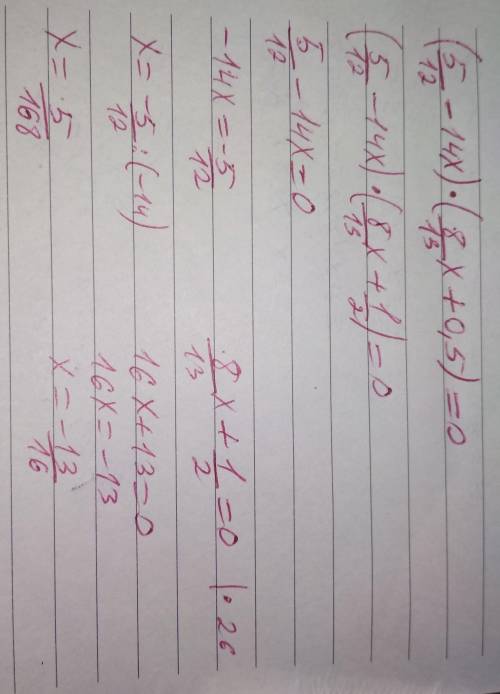 (5/12 - 14x) · (8/13 x + 0,5) = 0
(5/12 - 14x) · (8/13 x + 1/2) = 0
5/12 - 14x = 0
-14x = -5/12
x = -5/12 : (-14)
x = 5/168
8/13 x + 1/2 = 0 | · 26
16x + 13 = 0
16x = -13
x = -13/16